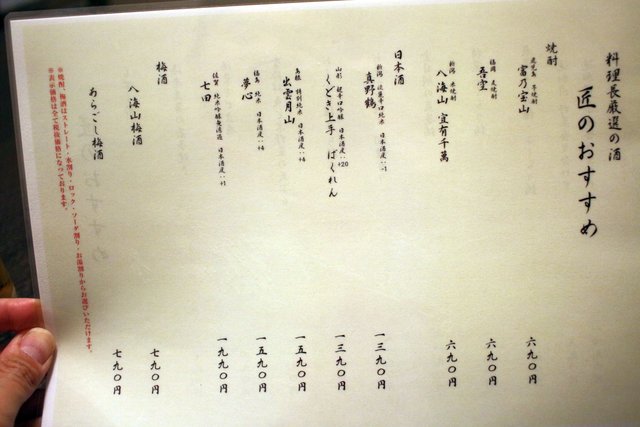 料理長厳選の酒
匠のおすすめ
焼酎
鹿児島 芋焼酎
富乃宝山 六九〇円
福岡 麦焼酎
吾空 六九〇円
新潟 米焼酎
八海山 宜有千萬 六九〇円
日本酒
新潟 淡麗辛口純米 日本酒度:-1
真野鶴 一三九〇円
山形 超辛口吟醸 日本酒度:+20
くどき上手 ばくれん 一三九〇円
島根 特別純米 日本酒度:+4
出雲月山 一五九〇円
福島 純米 日本酒度:+4
夢心 一五九〇円
佐賀 純米吟醸無濾過 日本酒度:+1
七田 一九九〇円
梅酒
八海山梅酒 七九〇円
あらごし梅酒 七九〇円
※焼酎、梅酒はストレート・水割り・ロック・ソーダ割り・お湯割りからお選びいただけます。
※表示価格は全て税抜価格になっております。